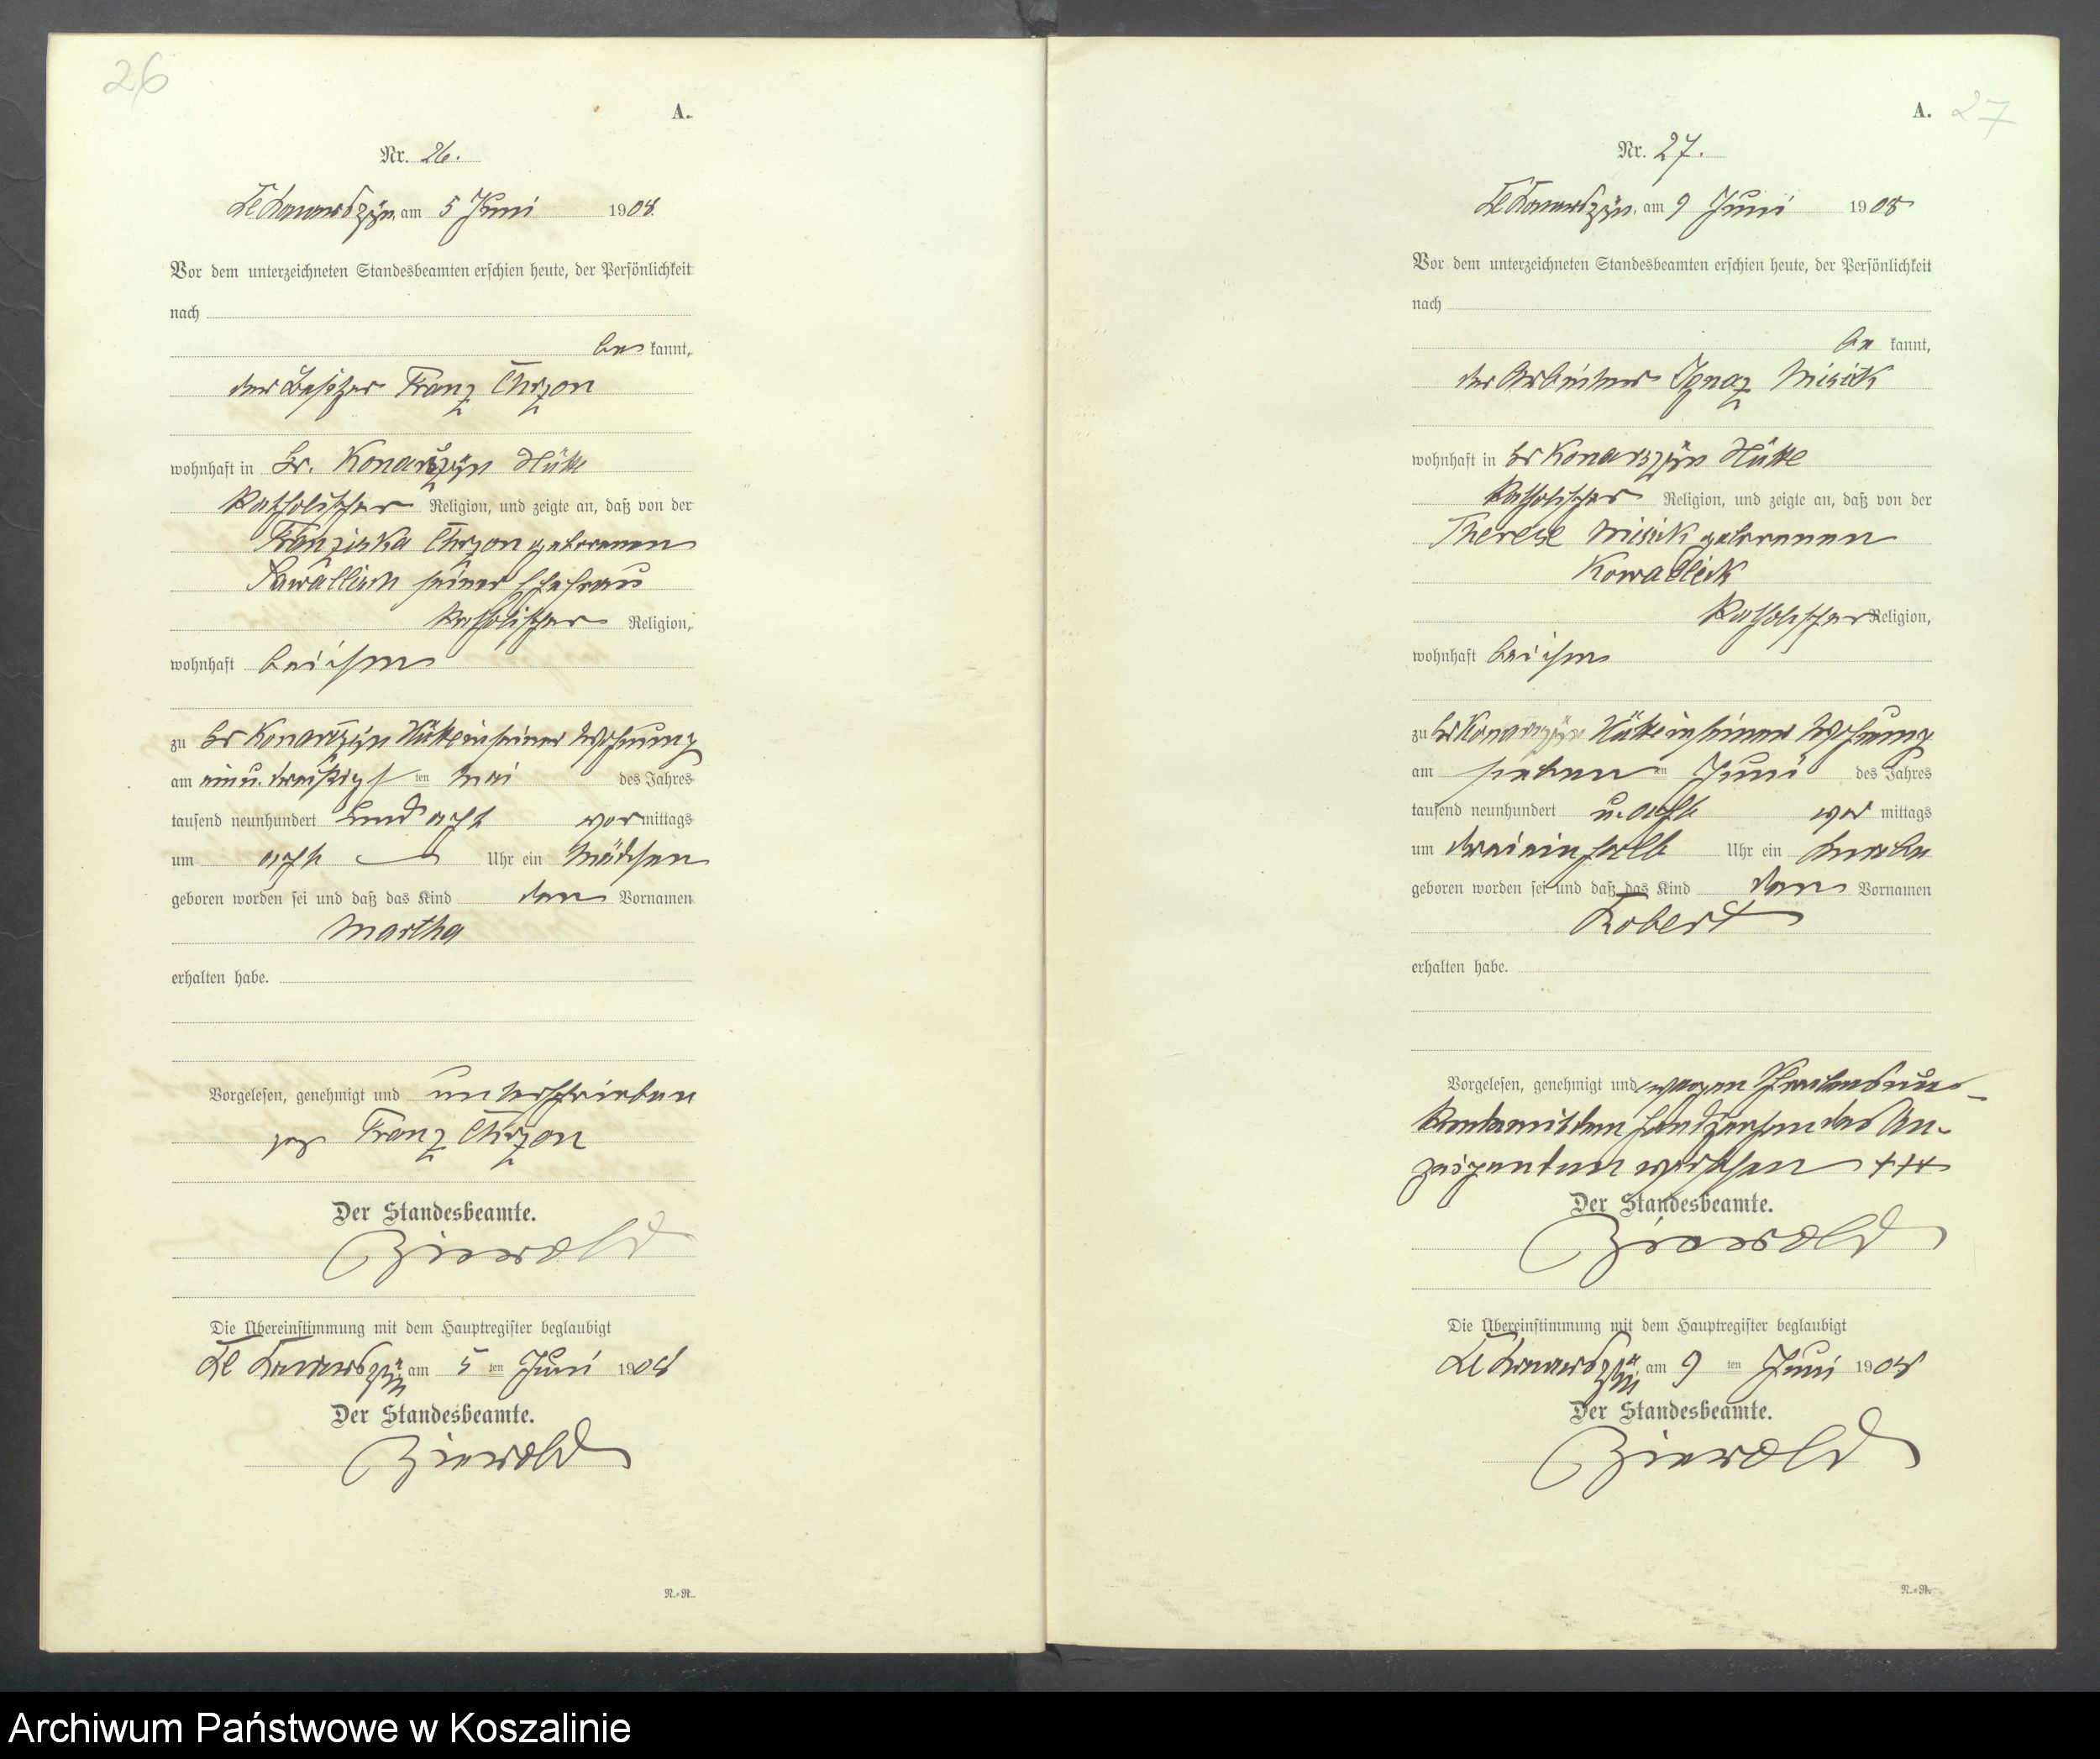 26
A.
Nr. 26.
Kl Konarszyn, am 5 Juni 1908.
Vor dem unterzeichneten Standesbeamten erschien heute, der Persönlichkeit
nach
be kannt,
der Besitzer Franz Chrzon
wohnhaft in Gr. Konarszyn Hütte
katholischer Religion, und zeigte an, daß von der
Franziska Chrzon geborenen
seiner Ehefrau
katholischer Religion,
wohnhaft bei ihm
zu Gr Konarszyn Hütte in seiner Wohnung
am ein u. dreißigs ten Mai des Jahres
tausend neunhundert und acht vor mittags
um acht Uhr ein Mädchen
geboren worden sei und daß das Kind den Vornamen
Martha
erhalten habe.
Vorgelesen, genehmigt und unterschrieben
gez Franz Chrzon
Der Standesbeamte.
Die Übereinstimmung mit dem Hauptregister beglaubigt
Kl Konarszyn am 5 ten Juni 1908
Der Standesbeamte.
N.=R.
A. 27
Nr. 27.
Kl Konarszyn, am 9 Juni 1908
Vor dem unterzeichneten Standesbeamten erschien heute, der Persönlichkeit
nach
be kannt,
der Arbeiter Ignaz Misik
wohnhaft in Gr Konarszyn Hütte
katholischer Religion, und zeigte an, daß von der
Therese Misik geborenen
katholischer Religion,
wohnhaft bei ihm
zu Gr Konarszyn Hütte in seiner Wohnung
am sieben ten Juni des Jahres
tausend neunhundert u. acht vor mittags
um drei ein halb Uhr ein Knabe
geboren worden sei und daß das Kind den Vornamen
Robert
erhalten habe.
Vorgelesen, genehmigt und wegen Schreibensun-
kunde mit den Handzeichen des An-
zeigenden versehen +++
Der Standesbeamte.
Die Übereinstimmung mit dem Hauptregister beglaubigt
Kl Konarszyn am 9 ten Juni 1908
Der Standesbeamte.
N.=R.
Archiwum Państwowe w Koszalinie